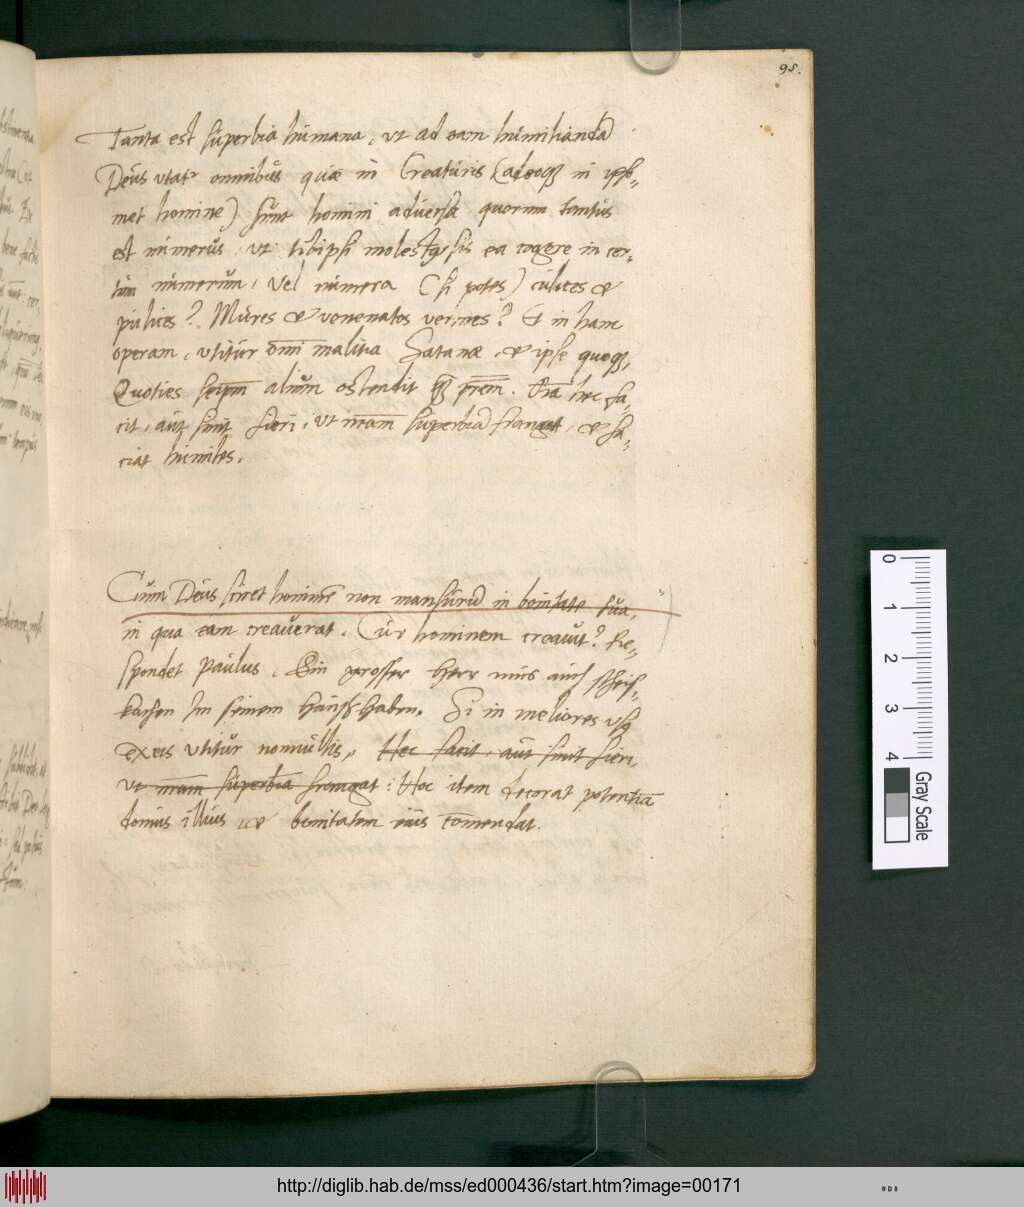 95.
Tanta est superbia humana, ut ad eam humilianda
Deus utatr omnibus quae in Creaturis (adeoq; in ipse=
met homine) sunt homini adversa quorum tantus
est numerus, ut tibi ipsi molestus sis ea cogere in cer=
tum numerum, Vel numera (si potes) culices &
pulices? Mures & venenatos vermes? Et in hanc
operam, utitur omi malitia Satanae, & ipse quoq,
Quoties seipm alium ostendit qm prem. Oia hec fa=
cit, aut sinit fieri, ut nram superbia frangat, & fa=
ciat humiles.
Cum Deus sciret homine non mansuru in bonitate sua,
in qua eam creaverat. Cur hominem creavit? Re=
spondet Paulus, Ein grosser herr mus auch scheis=
kachen Im seinem hauss haben. Si in meliores usq
exeis utitur nonnullis, Hec facit, aut sinit fieri,
ut nram superbia frangat: Hoc item decorat potentia
domus illius, & bonitatem eius comendat.
0
1
2
3
4
Gray Scale
http://diglib.hab.de/mss/ed000436/start.htm?image=00171